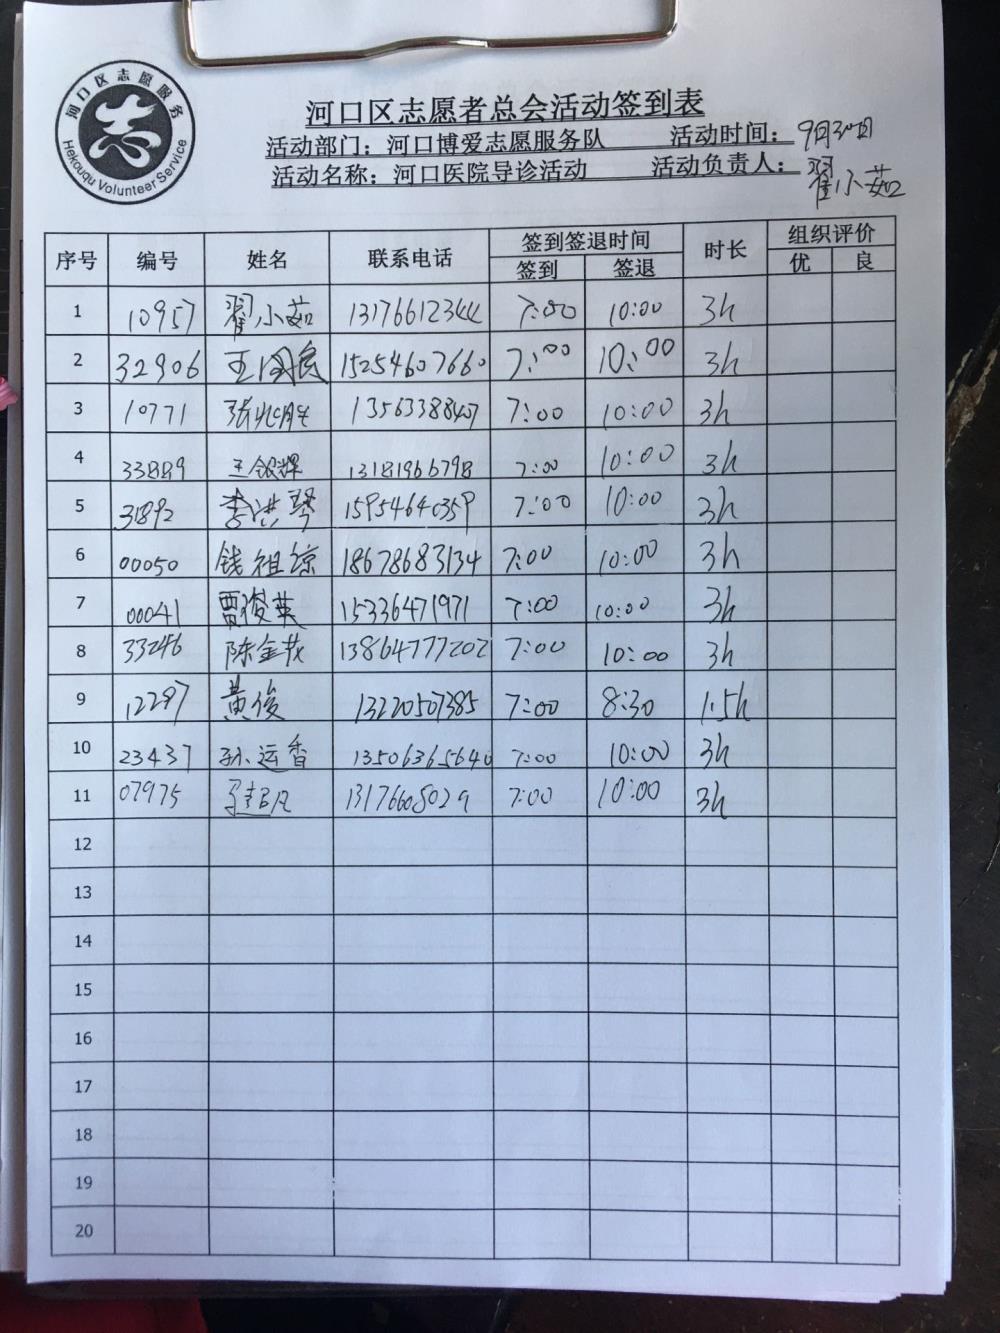 河口区志愿服务
志
Hekouqu Volunteer Service
河口区志愿者总会活动签到表
活动部门：河口博爱志愿服务队 活动时间：9月30日
活动名称：河口医院导诊活动 活动负责人：翟小茹
序号 编号 姓名 联系电话 签到签退时间 时长 组织评价
签到 签退 优 良
1 10957 翟小茹 13176612344 7:00 10:00 3h
2 32906 王国良 15254607660 7:00 10:00 3h
3 10771 张兆胜 13563388407 7:00 10:00 3h
4 33889 王银辉 13181966798 7:00 10:00 3h
5 31892 李洪琴 15954640359 7:00 10:00 3h
6 00050 钱祖琼 18678683134 7:00 10:00 3h
7 00041 贾俊英 15336471971 7:00 10:00 3h
8 33246 陈金花 13864777202 7:00 10:00 3h
9 12297 黄俊 13220507385 7:00 8:30 1.5h
10 23437 孙运香 13506365640 7:00 10:00 3h
11 07975 13176605029 7:00 10:00 3h
12
13
14
15
16
17
18
19
20